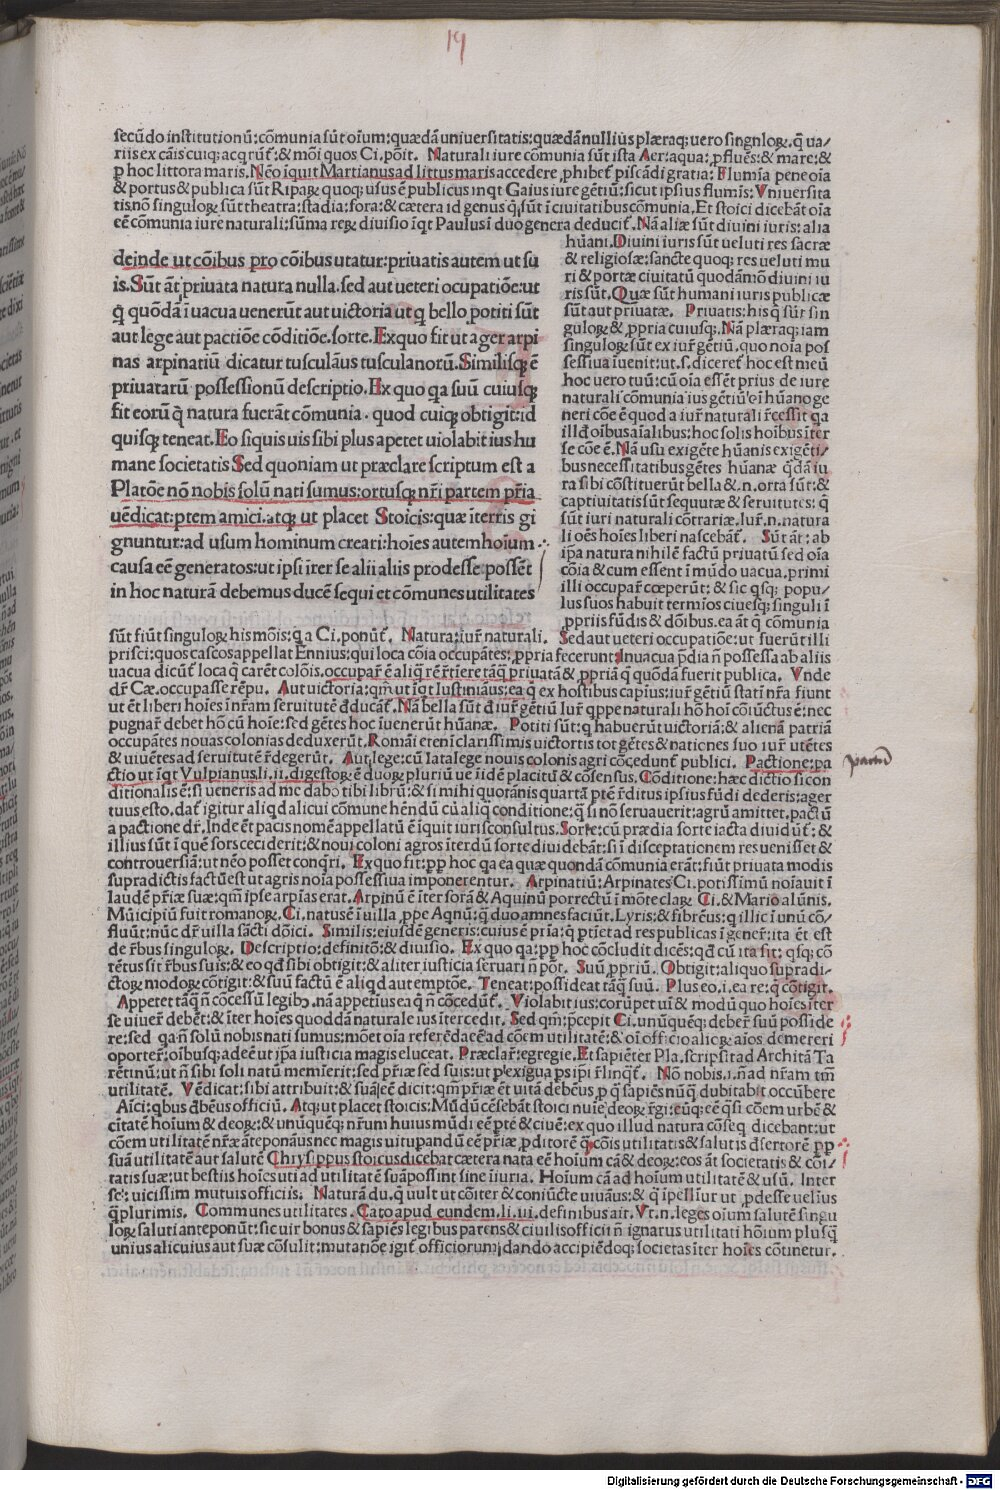 19
secūdo institutionū:cōmunia sūt oīum:quædā uniuersitatis:quædā nullius plæraq; uero singulorꝝ.q̄ ua/
riis ex cāis cuiq; acq̄rūt:& mōi quos Ci.pōit. Naturali iure cōmunia sūt ista Aer:aqua:ꝓfluēs:& mare:&
p hoc littora maris.Nēo īquit Martianus ad littus maris accedere ꝓhibet piscādi gratia: Flumīa pene oīa
& portus & publica sūt Riparꝝ quoq; usus ē publicus inqt Gaius iure gētiū:sicut ipsius flumīs: Vniuersita
tis nō singulorꝝ sūt theatra:stadia:fora:& cætera id genus q̄ sūt ī ciuitatibus cōmunia.Et stoici dicebāt oīa
eē cōmunia iure naturali:sūma rerꝝ diuisio īqt Paulus ī duo genera deducit. Nā aliæ sūt diuini iuris:alia
deinde ut cōibus pro cōibus utatur:priuatis autem ut su
is.Sūt āt priuata natura nulla.sed aut ueteri occupatiōe:ut
q̄ quōdā ī uacua uenerūt aut uictoria ut q bello potiti sūt
aut lege aut pactiōe cōditiōe.sorte.Ex quo fit ut ager arpi
nas arpinatiū dicatur tusculāus tusculanorū.Similisq; ē
priuatarū possessionū descriptio.Ex quo qa suū cuiusq;
fit eorū q̄ natura fuerāt cōmunia.quod cuiq; obtigit:id
quisq; teneat.Eo siquis uis sibi plus apetet uiolabit ius hu
mane societatis Sed quoniam ut præclare scriptum est a
Platōe nō nobis solū nati sumus:ortusq; nr̄i partem pr̄ia
uēdicat:ptem amici.atq; ut placet Stoicis:quæ īterris gi
gnuntur:ad usum hominum creari:hoīes autem hoīum
causa eē generatos:ut ipsi īter se alii aliis prodesse possēt
in hoc naturā debemus ducē sequi et cōmunes utilitates
hūani.Diuini iuris sūt ueluti res sacræ
& religiosæ:sanctę quoq; res ueluti mu
ri & portæ ciuitatū quodāmō diuini iu
ris sūt.Quæ sūt humani iuris publicæ
sūt aut priuatæ. Priuatis:his q̄ sūt sin
gulorꝝ & ꝓpria cuiusq;.Nā plæraq; iam
singulorꝝ sūt ex iur̄ gētiū.quo noīa pos
sessiua īuenit:ut.s.diceret hoc est meū
hoc uero tuū:cū oīa essēt prius de iure
naturali cōmunia ius gētiū ei hūano ge
neri cōe ē quod a iur̄ naturali r̄cessit qa
illd oībus aīalibus:hoc solis hoībus īter
se cōe ē.Nā usu exigēte hūanis exigēti/
bus necessitatibus gētes hūanæ q̄dā iu
ra sibi cōstituerūt bella &.n.orta sūt:&
captiuitatis sūt sequutæ & seruitutes: q̄
sūt iuri naturali cōtrariæ.Iur̄.n.natura
li oēs hoīes liberi nascebāt. Sūt āt:ab
ip̄a natura nihil ē factū priuatū sed oīa
cōia & cum essent ī mūdo uacua.primi
illi occupar̄ cœperūt:& sic qsq; popu/
lus suos habuit termios ciuesq; singuli ī
ꝓpriis fūdis & dōibus.ea āt q̄ cōmunia
sūt fiūt singulorꝝ his mōis:q̄ a Ci.ponūt. Natura:iur̄ naturali. Sed aut ueteri occupatiōe:ut fuerūt illi
prisci:quos cascos appellat Ennius:qui loca cōia occupātes:ꝓpria fecerunt.In uacua p̄dia n̄ possessa ab aliis
uacua dicūt loca q̄ carēt colōis.occupar̄ ē aliq̄ rē r̄tiere tāq̄ priuatā & ꝓpriā q̄ quōdā fuerit publica. Vnde
dr̄ Cæ.occupasse rēpu. Aut uictoria:qm̄ ut īqt Iustiniāus:ea q̄ ex hostibus capius:iur̄ gētiū statī nr̄a fiunt
ut ēt liberi hoīes ī nr̄am seruitutē ddūcāt.Nā bella sūt d iur̄ gētiū Iur̄ qppe naturali hō hoī cōiūctus ē:nec
pugnar̄ debet hō cū hoīe:sed gētes hoc īuenerūt hūanæ. Potiti sūt:q habuerūt uictoriā:& alienā patriā
occupātes nouas colonias deduxerūt.Romāi etenī clarissimis uictoriis tot gētes & nationes suo iur̄ utētes
& uiuētes ad seruitutē r̄degerūt. Aut.lege:cū lata lege nouis colonis agri cōcedunt̄ publici. Pactione:pa
ctio ut īqt Vulpianus li.ii.digestorꝝ ē duorꝝ pluriū ue ī idē placitū & cōsensus.Cōditione:hæc dictio si con
ditionalis ē:si ueneris ad me dabo tibi librū:& si mihi quotānis quartā ptē r̄ditus ipsius fūdi dederis:ager
tuus esto.dat̄ igitur aliqd alicui cōmune hēndū cū aliq̄ conditione:q̄ si nō seruauerit:agrū amittet.pactū
a pactione dr̄.Inde ēt pacis nomē appellatū ē īquit iurisconsultus.Sorte:cū prædia sorte iacta diuidūt̄:&
illius sūt ī quē sors ceciderit:& noui coloni agros īterdū sorte diuidebāt:si ī disceptationem res uenisset &
controuersiā:ut nēo posset conq̄ri. Ex quo fit:ꝓp hoc qa ea quæ quondā cōmunia erāt:fiūt priuata modis
supradictis factū est ut agris noīa possessiua imponerentur. Arpinatiū:Arpinates Ci.potissimū noīauit ī
laudē pr̄iæ suæ:qm̄ ipse arpīas erat.Arpinū ē īter sorā & Aquinū porrectū ī mōte clarꝝ Ci.& Mario alūnis.
Mūicipiū fuit romanorꝝ.Ci.natus ē ī uilla ꝓpe Aqnū:q̄ duo amnes faciūt.Lyris:& fibrēus:q illic ī unū cō/
fluūt:nūc dr̄ uilla sācti dōici. Similis:eiusdē generis:cuius ē pr̄ia:q̄ ptīet ad res publicas ī gener̄:ita ēt est
de r̄bus singulorꝝ. Descriptio:definitō:& diuisio. Ex quo qa:ꝓp hoc cōcludit dicēs:qd̄ cū ita sit:qsq; cō
tētus sit r̄bus suis:& eo qd̄ sibi obtigit:& aliter iusticia seruari n̄ pōt. Suū ꝓpriū. Obtigit:aliquo supradi/
ctorꝝ modorꝝ cōtigit:& suū factū ē aliqd aut emptōe. Teneat:possideat tāq̄ suū. Plus eo.i.ea re:q̄ cōtigit.
Appetet tāq̄ n̄ cōcessū legibꝰ.nā appetius ea q̄ n̄ cōcedūt. Violabit ius:corūpet uī & modū quo hoīes īter
se uiuer̄ debēt:& īter hoīes quoddā naturale ius ītercedit. Sed qm̄:p̄cepit Ci.unūquēq; deber̄ suū posside
re:sed qa n̄ solū nobis nati sumus:mōet oīa referēda eē ad cōem utilitatē:& oī officio alios aīos demereri
oportet:oībusq; adeē ut ip̄a iusticia magis eluceat. Præclar̄:egregie.Et sapiēter Pla.scripsit ad Architā Ta
rētinū:ut n̄ sibi soli natū memīerit:sed pr̄iæ sed suis:ut pexigua ps ip̄i r̄linqt̄. Nō nobis.i.n̄ ad nr̄am tm̄
utilitatē. Vēdicat:sibi attribuit:& suā eē dicit:qm̄ pr̄iæ ēt uitā debēus ꝓ q̄ sapiēs nūq̄ dubitabit occūbere
Aīci:qbus dbēus officiū. Atq; ut placet stoicis:Mūdū cēsebāt stoici nuīe deorꝝ r̄gi:eūq; eē q̄si cōem urbē &
ciītatē hoīum & deorꝝ:& unūquēq; nr̄um huius mūdi eē ptē & ciuē:ex quo illud natura cōseq̄ dicebant:ut
cōem utilitatē nr̄æ āteponāus nec magis uitupandū eē pr̄iæ ꝓditorē q̄ cōis utilitatis & salutis dsertorē ꝓp
suā utilitatē aut salutē Chrysippus stoicus dicebat cætera nata eē hoīum cā & deorꝝ:eos āt societatis & cōi/
tatis suæ:ut bestiis hoīes uti ad utilitatē suā possint sine īiuria. Hoīum cā ad hoīum utilitatē & usū. Inter
se:uicissim mutuis officiis. Naturā du.q̄ uult ut cōiter & coniūcte uiuāus:& q̄ īpellīur ut ꝓdesse uelīus
q̄ plurimis. Communes utilitates. Cato apud eundem.li.iii.definibus ait. Vt.n.leges oīum salutē singu
lorꝝ saluti anteponūt:sic uir bonus & sapiēs legibus parens & ciuilis officii n̄ ignarus utilitati hōium plusq̄
unius alicuius aut suæ cōsulit:mutatiōe igit̄ officiorum:dando accipiēdoq; societas īter hoīes cōtinetur.
Digitalisierung gefördert durch die Deutsche Forschungsgemeinschaft - DFG